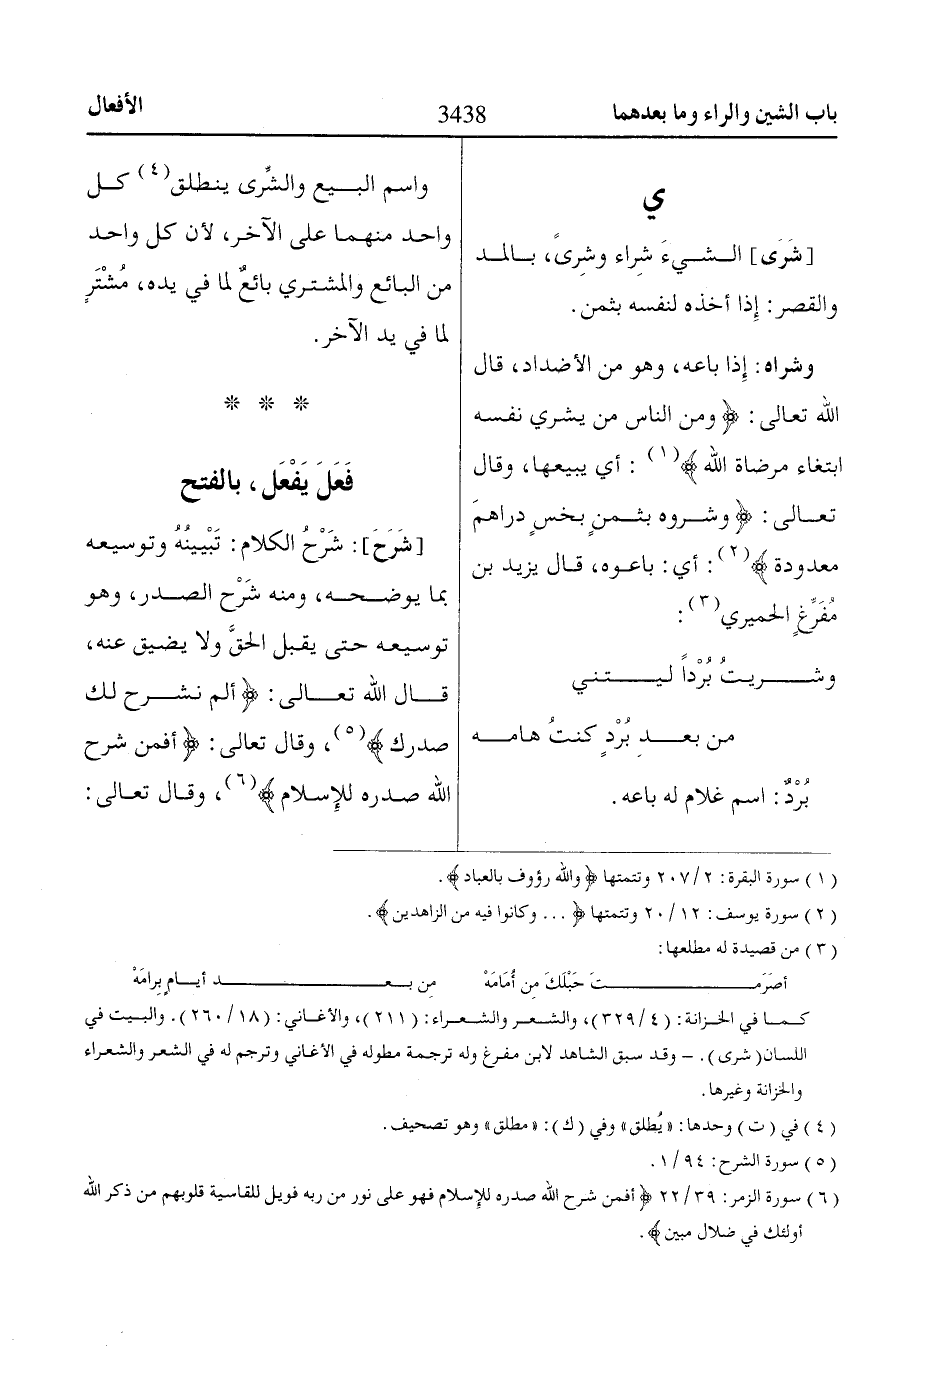 باب الشين والراء وما بعدهما 3438 الأفعال
ي
[شَرَى] الشيءَ شِراء وشِرىً، بالمد
والقصر: إذا أخذه لنفسه بثمن.
وشراه: إذا باعه، وهو من الأضداد، قال
الله تعالى: ﴿ومن الناس من يشري نفسه
ابتغاء مرضاة الله﴾(١) : أي يبيعها، وقال
تعالى: ﴿وشروه بثمنٍ بخسٍ دراهمَ
معدودة﴾(٢): أي: باعوه، قال يزيد بن
مُفَرِّغٍ الحميري(٣):
وشريتُ بُرْداً ليتني
من بعدِ بُرْدٍ كنتُ هامه
بُرْدٌ: اسم غلام له باعه.
واسم البيع والشِّرى ينطلق(٤) كل
واحد منهما على الآخر، لأن كل واحد
من البائع والمشتري بائعٌ لما في يده، مُشْتَرٍ
لما في يد الآخر.
* * *
فَعَلَ يَفْعَل، بالفتح
[شَرَحَ]: شَرْحُ الكلام: تَبْيِينُهُ وتوسيعه
بما يوضحه، ومنه شَرْح الصدر، وهو
توسيعه حتى يقبل الحقَّ ولا يضيق عنه،
قال الله تعالى: ﴿ألم نشرح لك
صدرك﴾(٥)، وقال تعالى: ﴿أفمن شرح
الله صدره للإسلام﴾(٦)، وقال تعالى:
(١) سورة البقرة: ٢/ ٢٠٧ وتتمتها ﴿والله رؤوف بالعباد﴾.
(٢) سورة يوسف: ١٢/ ٢٠ وتتمتها ﴿... وكانوا فيه من الزاهدين﴾.
(٣) من قصيدة له مطلعها:
أصَرَمـتَ حَبْلَكَ من أُمَامَهْ من بعـد أيامٍ برامَهْ
كما في الخزانة: (٤/ ٣٢٩)، والشعر والشعراء: (٢١١)، والأغاني: (١٨/ ٢٦٠). والبيت في
اللسان (شرى). – وقد سبق الشاهد لابن مفرغ وله ترجمة مطوله في الأغاني وترجم له في الشعر والشعراء
والخزانة وغيرها.
(٤) في (ت) وحدها: «يُطلق» وفي (ك): «مطلق» وهو تصحيف.
(٥) سورة الشرح: ٩٤/ ١.
(٦) سورة الزمر: ٣٩/ ٢٢ ﴿أفمن شرح الله صدره للإسلام فهو على نور من ربه فويل للقاسية قلوبهم من ذكر الله
أولئك في ضلال مبين﴾.